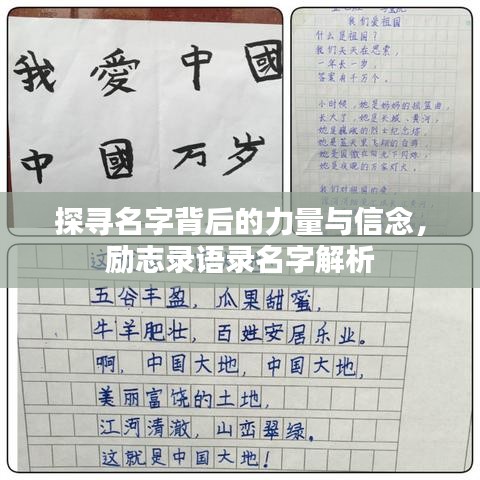 我 愛 中 國
中 國 万 岁
我们爱祖国
什么是祖国?
我们天天在思索,
一年长一步,
答案有千万个。
小时候,她是妈妈的摇篮曲,
长大了,她是长城、黄河,
她是巍峨的烈士纪念塔,
她是蓝天里飞翔的白鸽,
她是国徽在阳光下闪烁,
她是夜晚的万家灯火。
我们对祖国的爱,
探寻名字背后的力量与信念，
励志录语录名字解析
五谷丰盈,瓜果甜蜜,
牛羊肥壮,百姓安居乐业。
啊,中国大地,中国大地,
美丽富饶的土地,
江河清澈,山峦翠绿。
这就是中国大地!